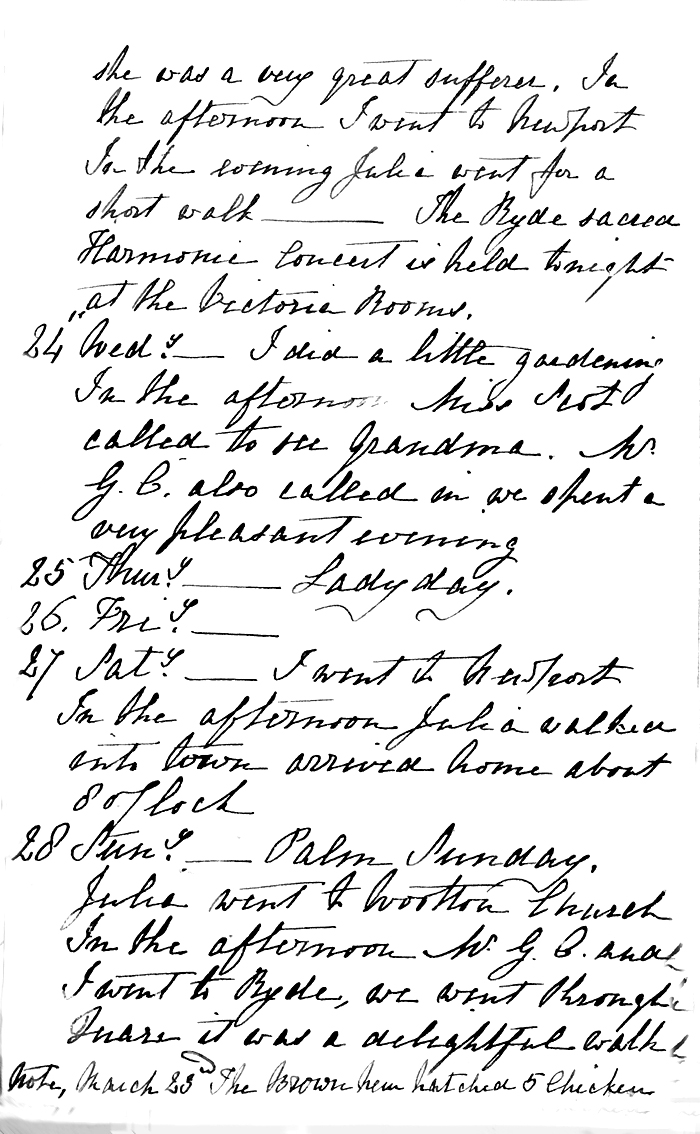 she was a very great sufferer. In
the afternoon I went to Newport
In the evening Julia went for a
short walk ——— The Ryde sacred
Harmonic Concert is held tonight
at the Victoria Rooms.
24 Wedy. — I did a little gardening
In the afternoon Miss Scot
called to see Grandma. Mr.
G. C. also called in we spent a
very pleasant evening
25 Thury. —— Lady day.
26. Friy. ——
27 Saty. — I went to Newport
In the afternoon Julia walked
into town arrived home about
8 o/Clock
28 Suny. — Palm Sunday.
Julia went to Wootton Church
In the afternoon Mr. G. C. and
I went to Ryde, we went through
Quarr it was a delightful walk
Note, March 23rd The Brown hen hatched 5 Chicken